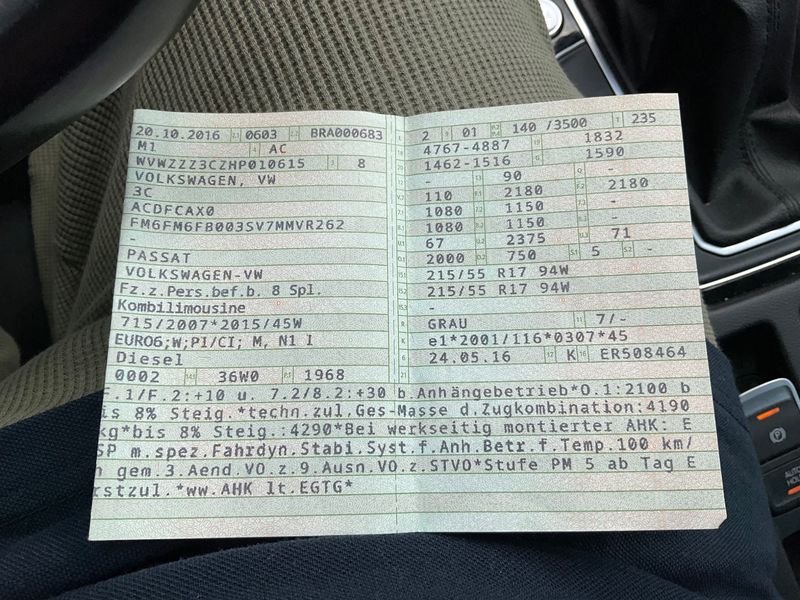 20.10.2016 0603 BRA000683
M1 AC
WVWZZZ3CZHP010615 8
VOLKSWAGEN, VW
3C
ACDFCAX0
FM6FM6FB003SV7MMVR262
-
PASSAT
VOLKSWAGEN-VW
Fz.z.Pers.bef.b. 8 Spl.
Kombilimousine
715/2007*2015/45W
EURO6;W;PI/CI; M, N1 I
Diesel
0002 36W0 1968
2 01 140 /3500 235
4767-4887 1832
1462-1516 1590
- 90 -
110 2180 2180
1080 1150 -
1080 1150 -
67 2375 71
2000 750 5 -
215/55 R17 94W
215/55 R17 94W
-
GRAU 7/-
e1*2001/116*0307*45
24.05.16 K ER508464
F.1/F.2:+10 u. 7.2/8.2:+30 b.Anhängebetrieb*O.1:2100 b
is 8% Steig.*techn.zul.Ges-Masse d.Zugkombination:4190
kg*bis 8% Steig.:4290*Bei werkseitig montierter AHK: E
SP m.spez.Fahrdyn.Stabi.Syst.f.Anh.Betr.f.Temp.100 km/
h gem.3.Aend.VO.z.9.Ausn.VO.z.STVO*Stufe PM 5 ab Tag E
rstzul.*ww.AHK lt.EGTG*